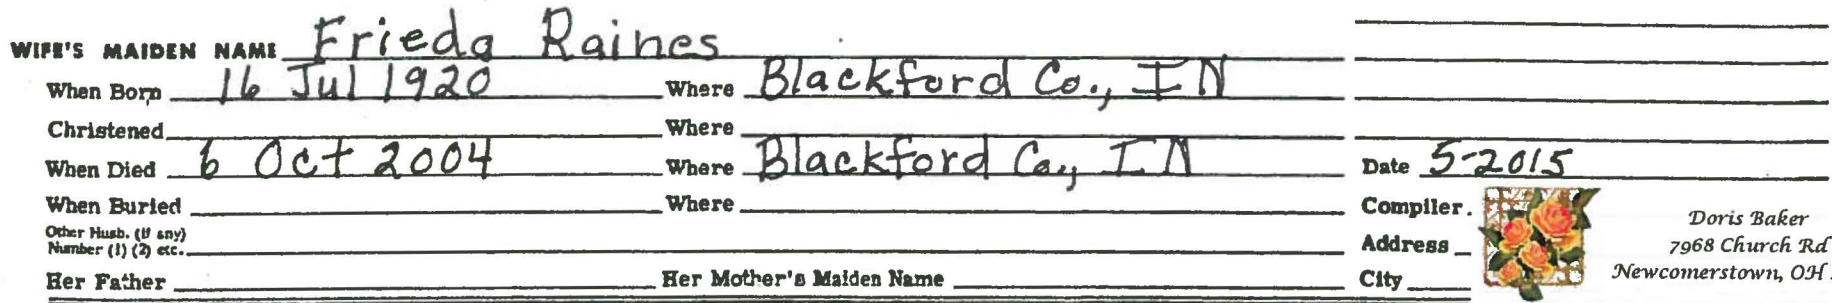 WIFE'S MAIDEN NAME Frieda Raines
When Born 16 Jul 1920 Where Blackford Co., IN
Christened Where
When Died 6 Oct 2004 Where Blackford Co., IN Date 5-2015
When Buried Where Compiler.
Other Husb. (if any)
Number (1) (2) etc.
Address
Her Father Her Mother's Maiden Name City
Doris Baker
7968 Church Rd
Newcomerstown, OH